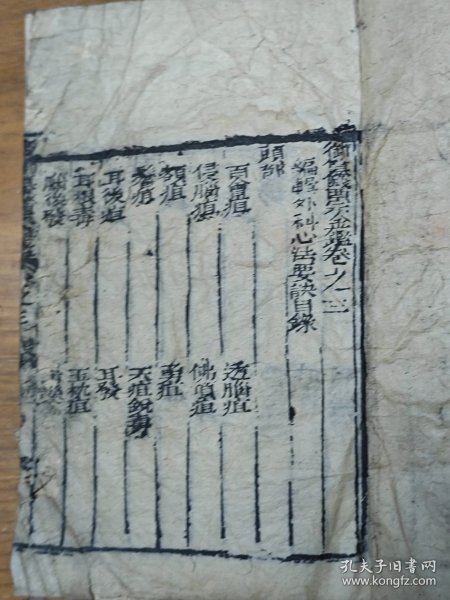 御纂醫宗金鑑卷六十三
編輯外科心法要訣目錄
頭部
百會疽
透腦疽
侵腦疽
佛頂疽
額疽
勇疽
鬢疽
天疽銳毒
耳後疽
耳發
耳根毒
玉枕疽
腦後發
孔夫子旧书网
www.kongfz.com